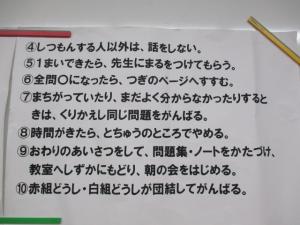 ④しつもんする人以外は、話をしない。
⑤1まいできたら、先生にまるをつけてもらう。
⑥全問〇になったら、つぎのページへすすむ。
⑦まちがっていたり、まだよく分からなかったりすると
きは、くりかえし同じ問題をがんばる。
⑧時間がきたら、とちゅうのところでやめる。
⑨おわりのあいさつをして、問題集・ノートをかたづけ、
教室へしずかにもどり、朝の会をはじめる。
⑩赤組どうし・白組どうしが団結してがんばる。